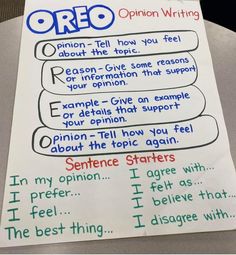 OREO Opinion Writing
Opinion - Tell how you feel
about the topic.
Reason - Give some reasons
or information that support
your opinion.
Example - Give an example
or details that support
your opinion.
Opinion - Tell how you feel
about the topic again.
Sentence Starters
In my opinion... I agree with...
I prefer... I felt as...
I feel... I believe that...
The best thing... I disagree with...